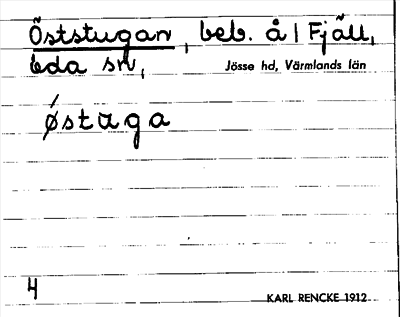 Öststugan, beb. å 1 Fjäll,
Eda sn,
Jösse hd, Värmlands län
östuga
4
KARL RENCKE 1912